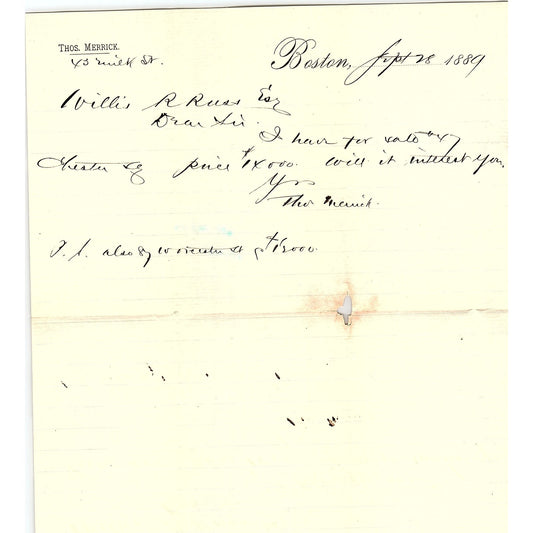 THOS. MERRICK.
Boston, Sept 28 1889
43 Milk St.
Willis R Russ Esq
Dear Sir.
I have for sale #47
Chester Sq price $14000. Will it interest you,
Yrs
Thos Merrick.
P. S. also 87 Worcester St $13000.